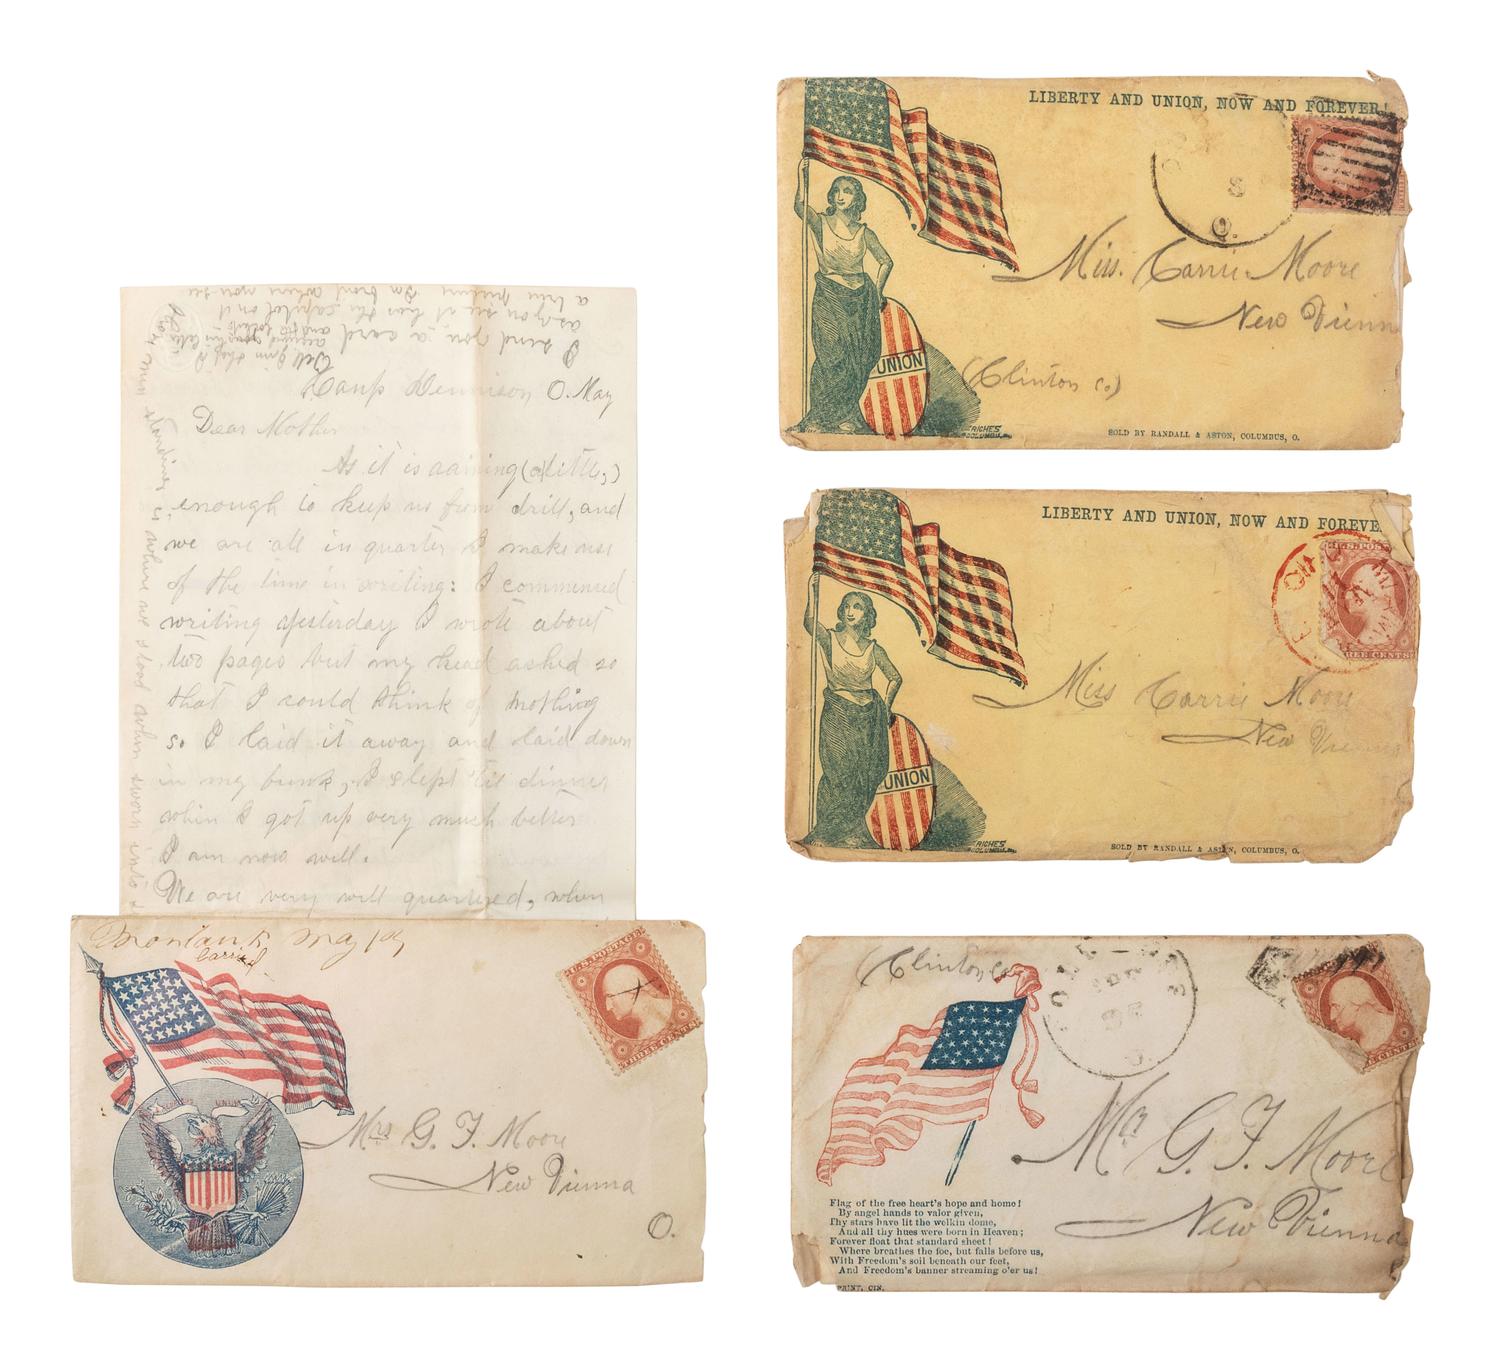 I send you a card
as you see it has the capitol on it
a true picture I'm trout where you see
Camp Dennison O. May
Dear Mother
As it is aaining (a little,)
enough to keep us from drill, and
we are all in quarter I make use
of the time in writing: I commenced
writing yesterday I wrote about
two pages but my head ached so
that I could think of nothing
so I laid it away and laid down
in my bunk, I slept till dinner
when I got up very much better
I am now well.
We are very well quartered, when
is where we stood when sworn into
Montauk May 19
Carried
U.S. POSTAGE
THREE CENTS
E PLURIBUS UNUM
Mrs G. F. Moore
New Vienna
O.
LIBERTY AND UNION, NOW AND FOREVER!
8
O.
Miss. Carrie Moore
New Vienn
UNION
(Clinton Co)
RICHES
COLUMBUS, O.
SOLD BY RANDALL & ASTON, COLUMBUS, O.
LIBERTY AND UNION, NOW AND FOREVE
U.S. POST
REE CENTS
Miss Carrie Moore
New Vienna
UNION
RICHES
COLUMBUS, O.
SOLD BY RANDALL & ASTON, COLUMBUS, O.
Clinton Co
O.
Mr G. F. Moore
New Vienna
Flag of the free heart's hope and home!
By angel hands to valor given,
Thy stars have lit the welkin dome,
And all thy hues were born in Heaven;
Forever float that standard sheet!
Where breathes the foe, but falls before us,
With Freedom's soil beneath our feet,
And Freedom's banner streaming o'er us!
PRINT, CIN.